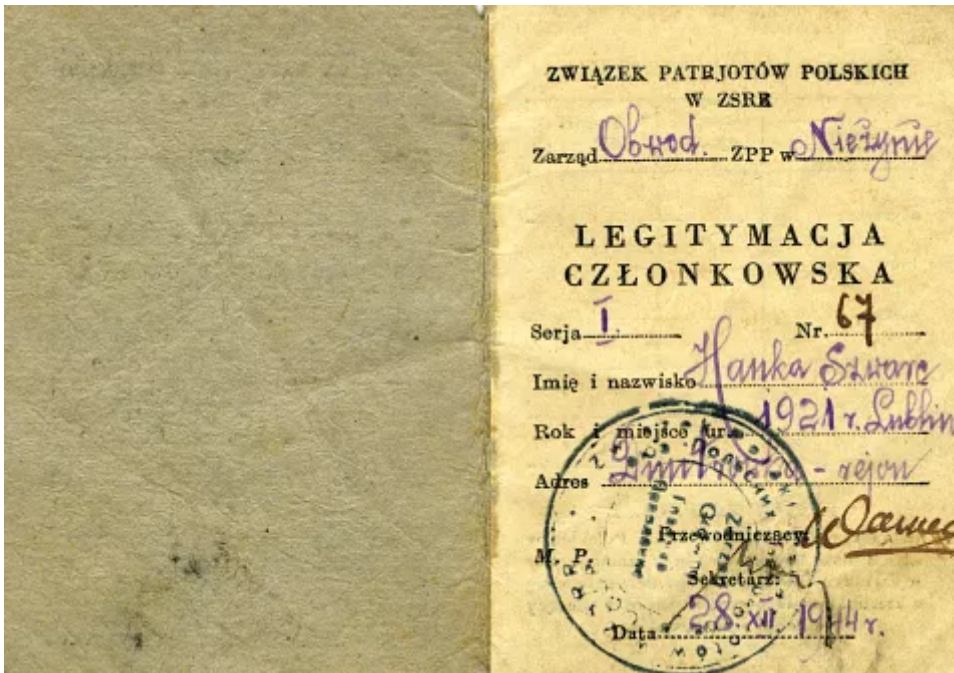 ZWIĄZEK PATRJOTÓW POLSKICH
W ZSRR
Zarząd Obwod. ZPP w Nieżynie
LEGITYMACJA
CZŁONKOWSKA
Serja I Nr. 67
Imię i nazwisko Hanka Szwarc
Rok i miejsce ur. 1921 r. Lublin
Adres - rejon
Przewodniczący:
M. P.
Sekretarz:
Data 28. XII 1944 r.